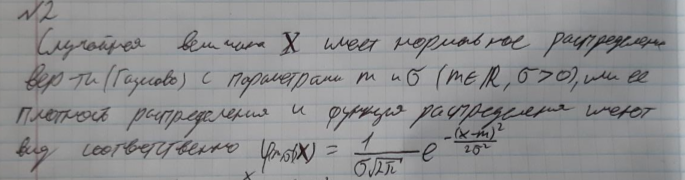 №2
Случайная величина X имеет нормальное распределение
вер-ти (Гауссово) с параметрами m и σ (m∈ℝ, σ>0), или ее
плотность распределения и функция распределения имеют
вид соответственно φm,σ(x) = 1/(σ√2π) e^(-(x-m)²/2σ²)